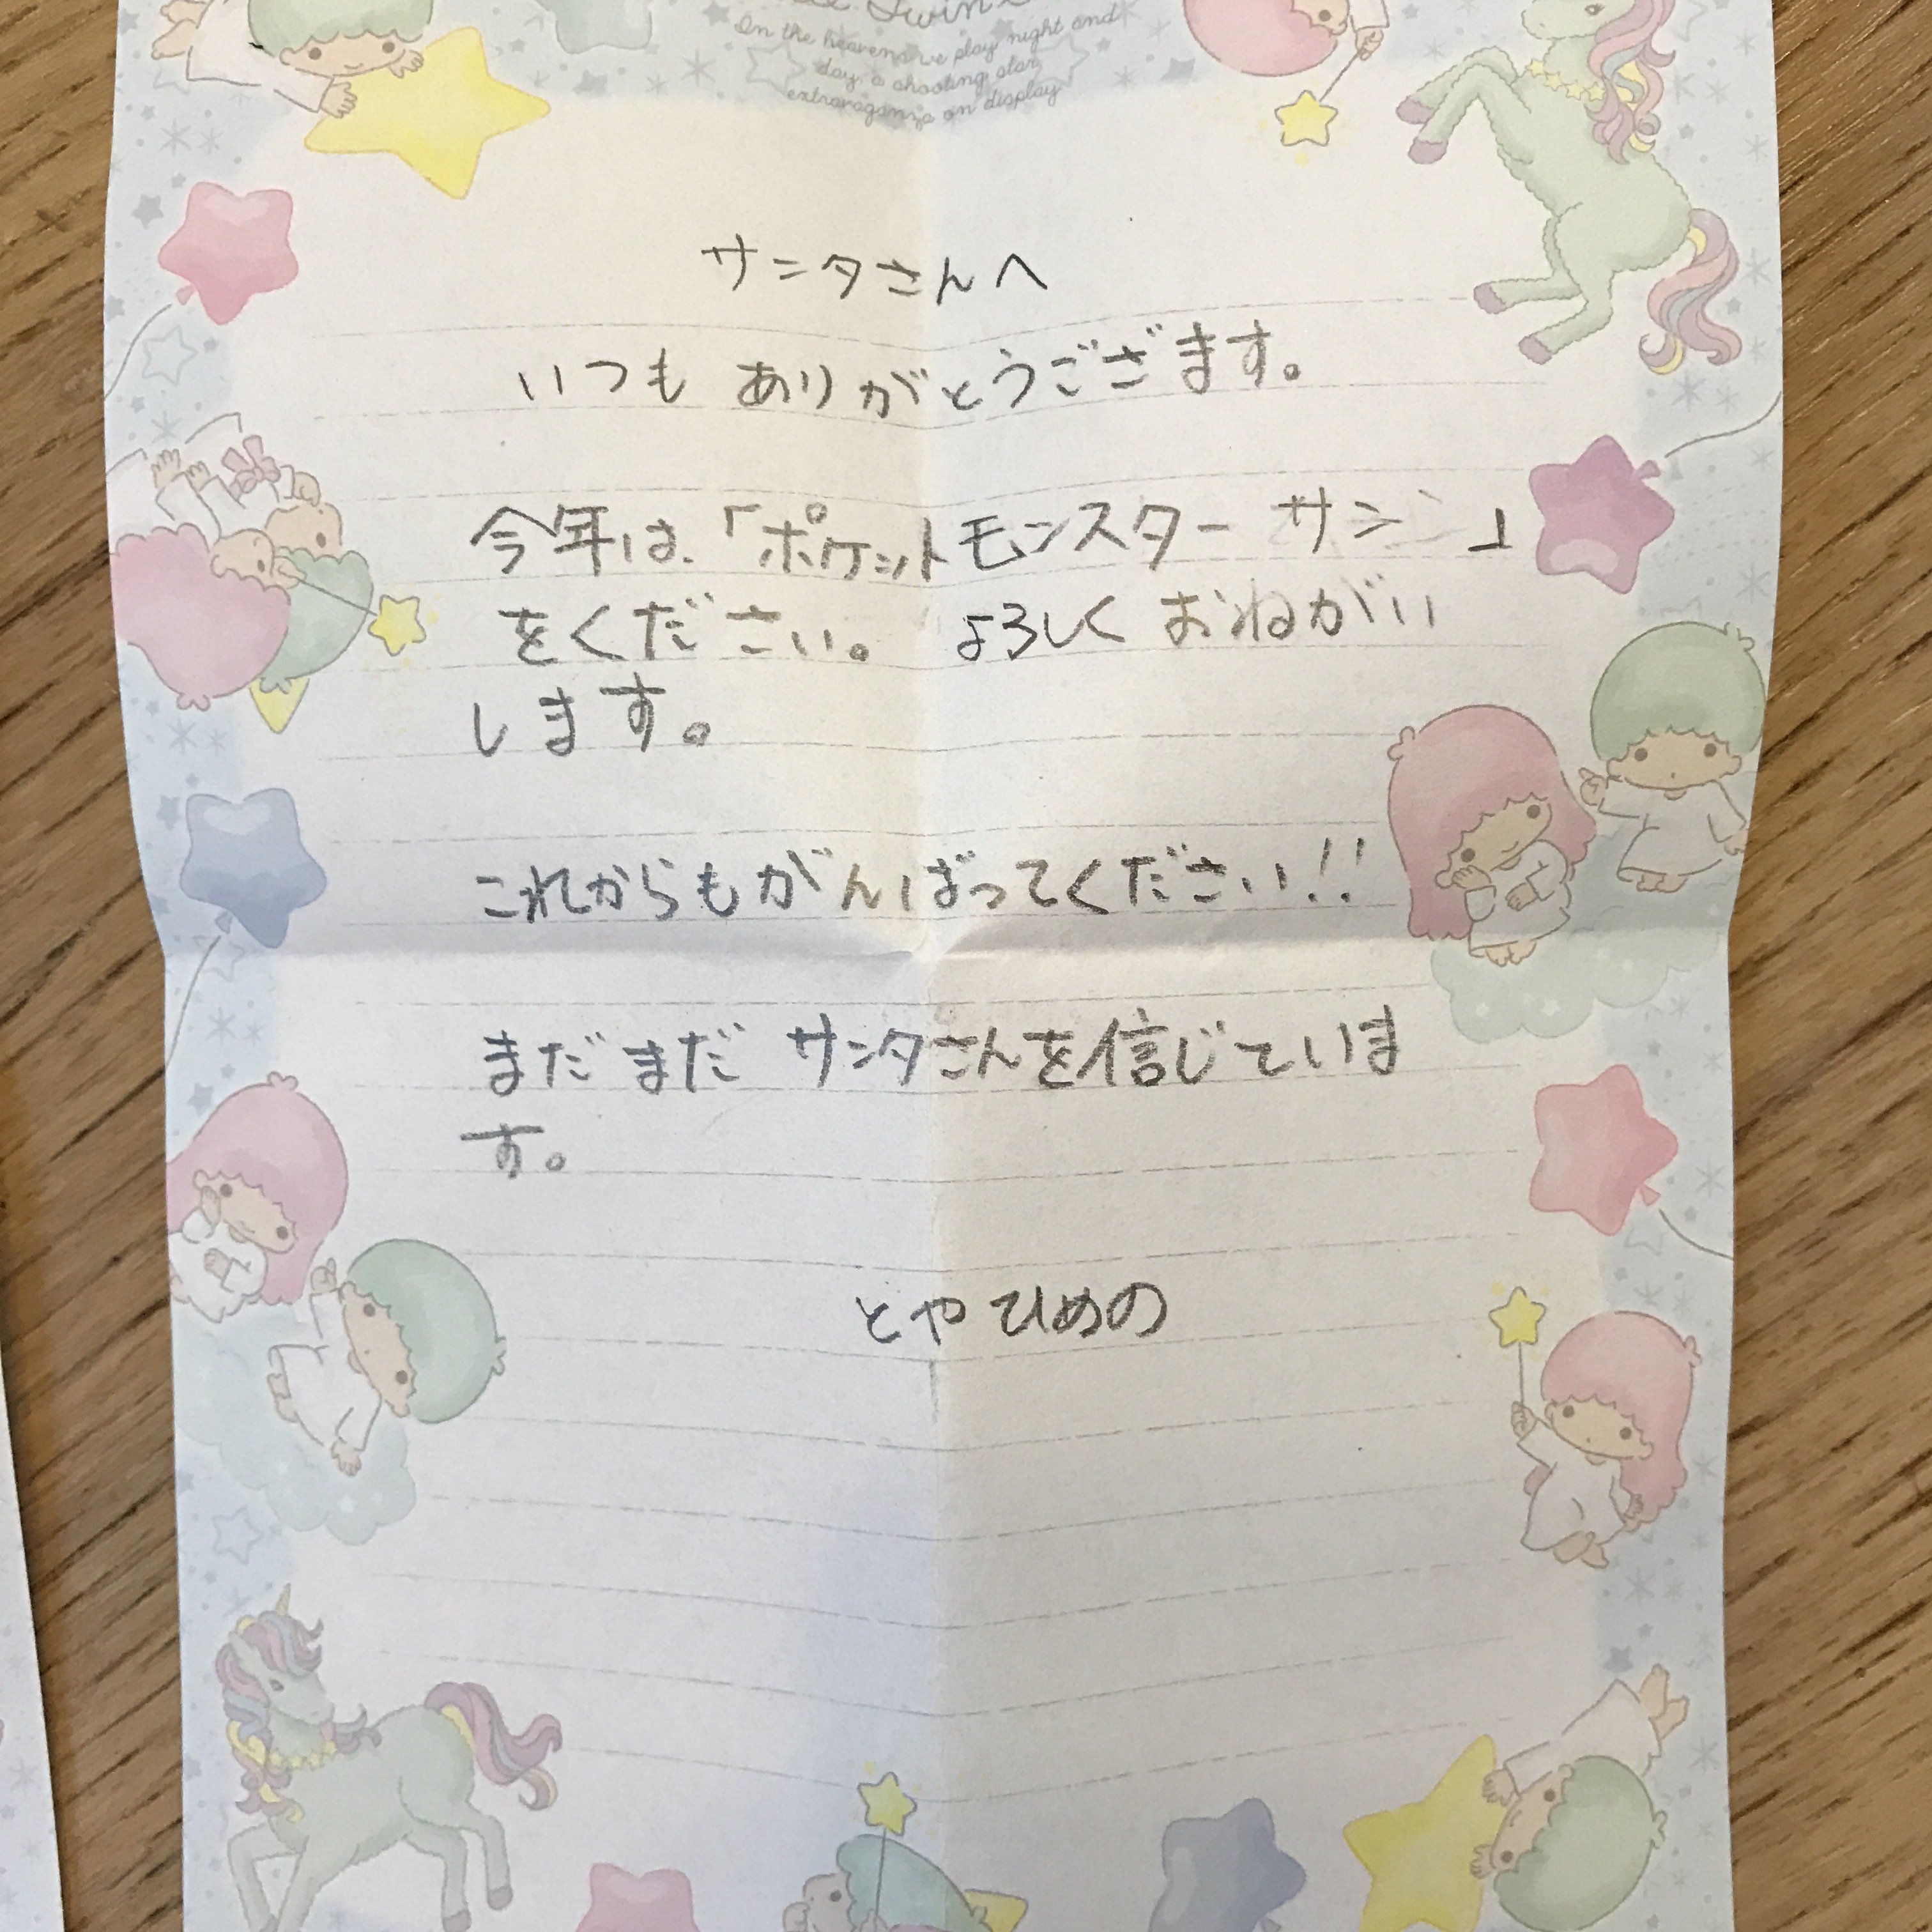 In the heavens we play night and
day, a shooting star
extravaganza on display
サンタさんへ
いつも ありがとうござます。
今年は、「ポケットモンスター サン」
をください。 よろしく おねがい
します。
これからもがんばってください!!
まだまだ サンタさんを信じていま
す。
とや ひめの